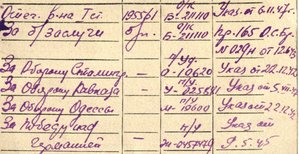 Отеч. р-на Iст. 1955г. О/К Б-211110 Указ. от 6.11.47г.
За б/заслуги б/н. О/К Б-211110 Пр. 165 О.С.Бр.
№ 029н от 12.6.43
За Оборону Сталингр. — п/Уд. О-10620 Указ от 22.12.42
За Оборону Кавказа — п/у У-025641 Указ от
За Оборону Одессы — п/У 19600 Указ от 22.12.42
За Победу над — п/у Указ от
Германией — Ж-0457479 9.5.45